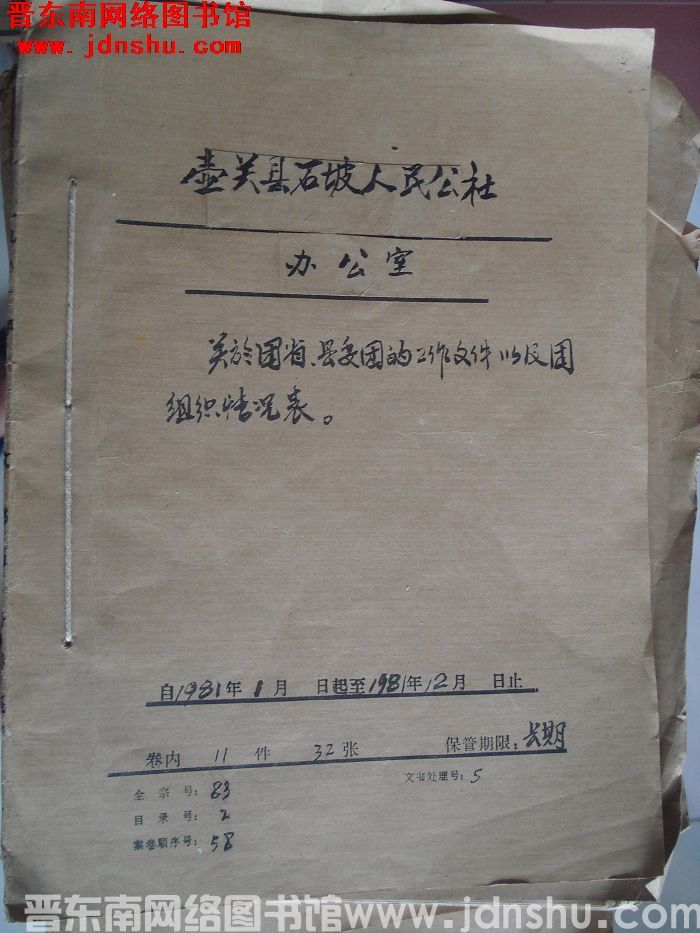 晋东南网络图书馆
www.jdnshu.com
壶关县石坡人民公社
办公室
关於团省、县委团的工作文件以及团
组织情况表。
自1981年1月 日起至1981年12月 日止
卷内 11 件 32 张 保管期限：长期
全宗号：83 文书处理号：5
目录号：2
案卷顺序号：58
晋东南网络图书馆www.jdnshu.com